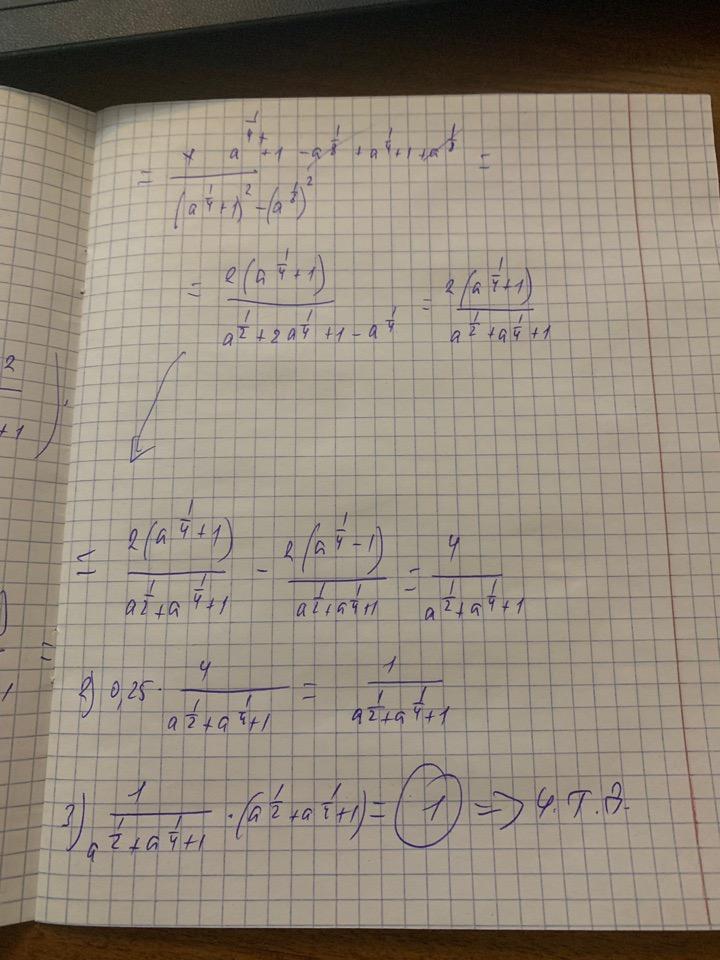 2
+1
)
= (a^{\frac{1}{4}}+1 - a^{\frac{1}{8}} + a^{\frac{1}{4}}+1+a^{\frac{1}{8}}) / ((a^{\frac{1}{4}}+1)^2 - (a^{\frac{1}{8}})^2) =
= \frac{2(a^{\frac{1}{4}}+1)}{a^{\frac{1}{2}}+2a^{\frac{1}{4}}+1-a^{\frac{1}{4}}} = \frac{2(a^{\frac{1}{4}}+1)}{a^{\frac{1}{2}}+a^{\frac{1}{4}}+1}
= \frac{2(a^{\frac{1}{4}}+1)}{a^{\frac{1}{2}}+a^{\frac{1}{4}}+1} - \frac{2(a^{\frac{1}{4}}-1)}{a^{\frac{1}{2}}+a^{\frac{1}{4}}+1} = \frac{4}{a^{\frac{1}{2}}+a^{\frac{1}{4}}+1}
2) 0,25 · \frac{4}{a^{\frac{1}{2}}+a^{\frac{1}{4}}+1} = \frac{1}{a^{\frac{1}{2}}+a^{\frac{1}{4}}+1}
3) \frac{1}{a^{\frac{1}{2}}+a^{\frac{1}{4}}+1} · (a^{\frac{1}{2}}+a^{\frac{1}{4}}+1) = 1 => Ч.Т.Д.